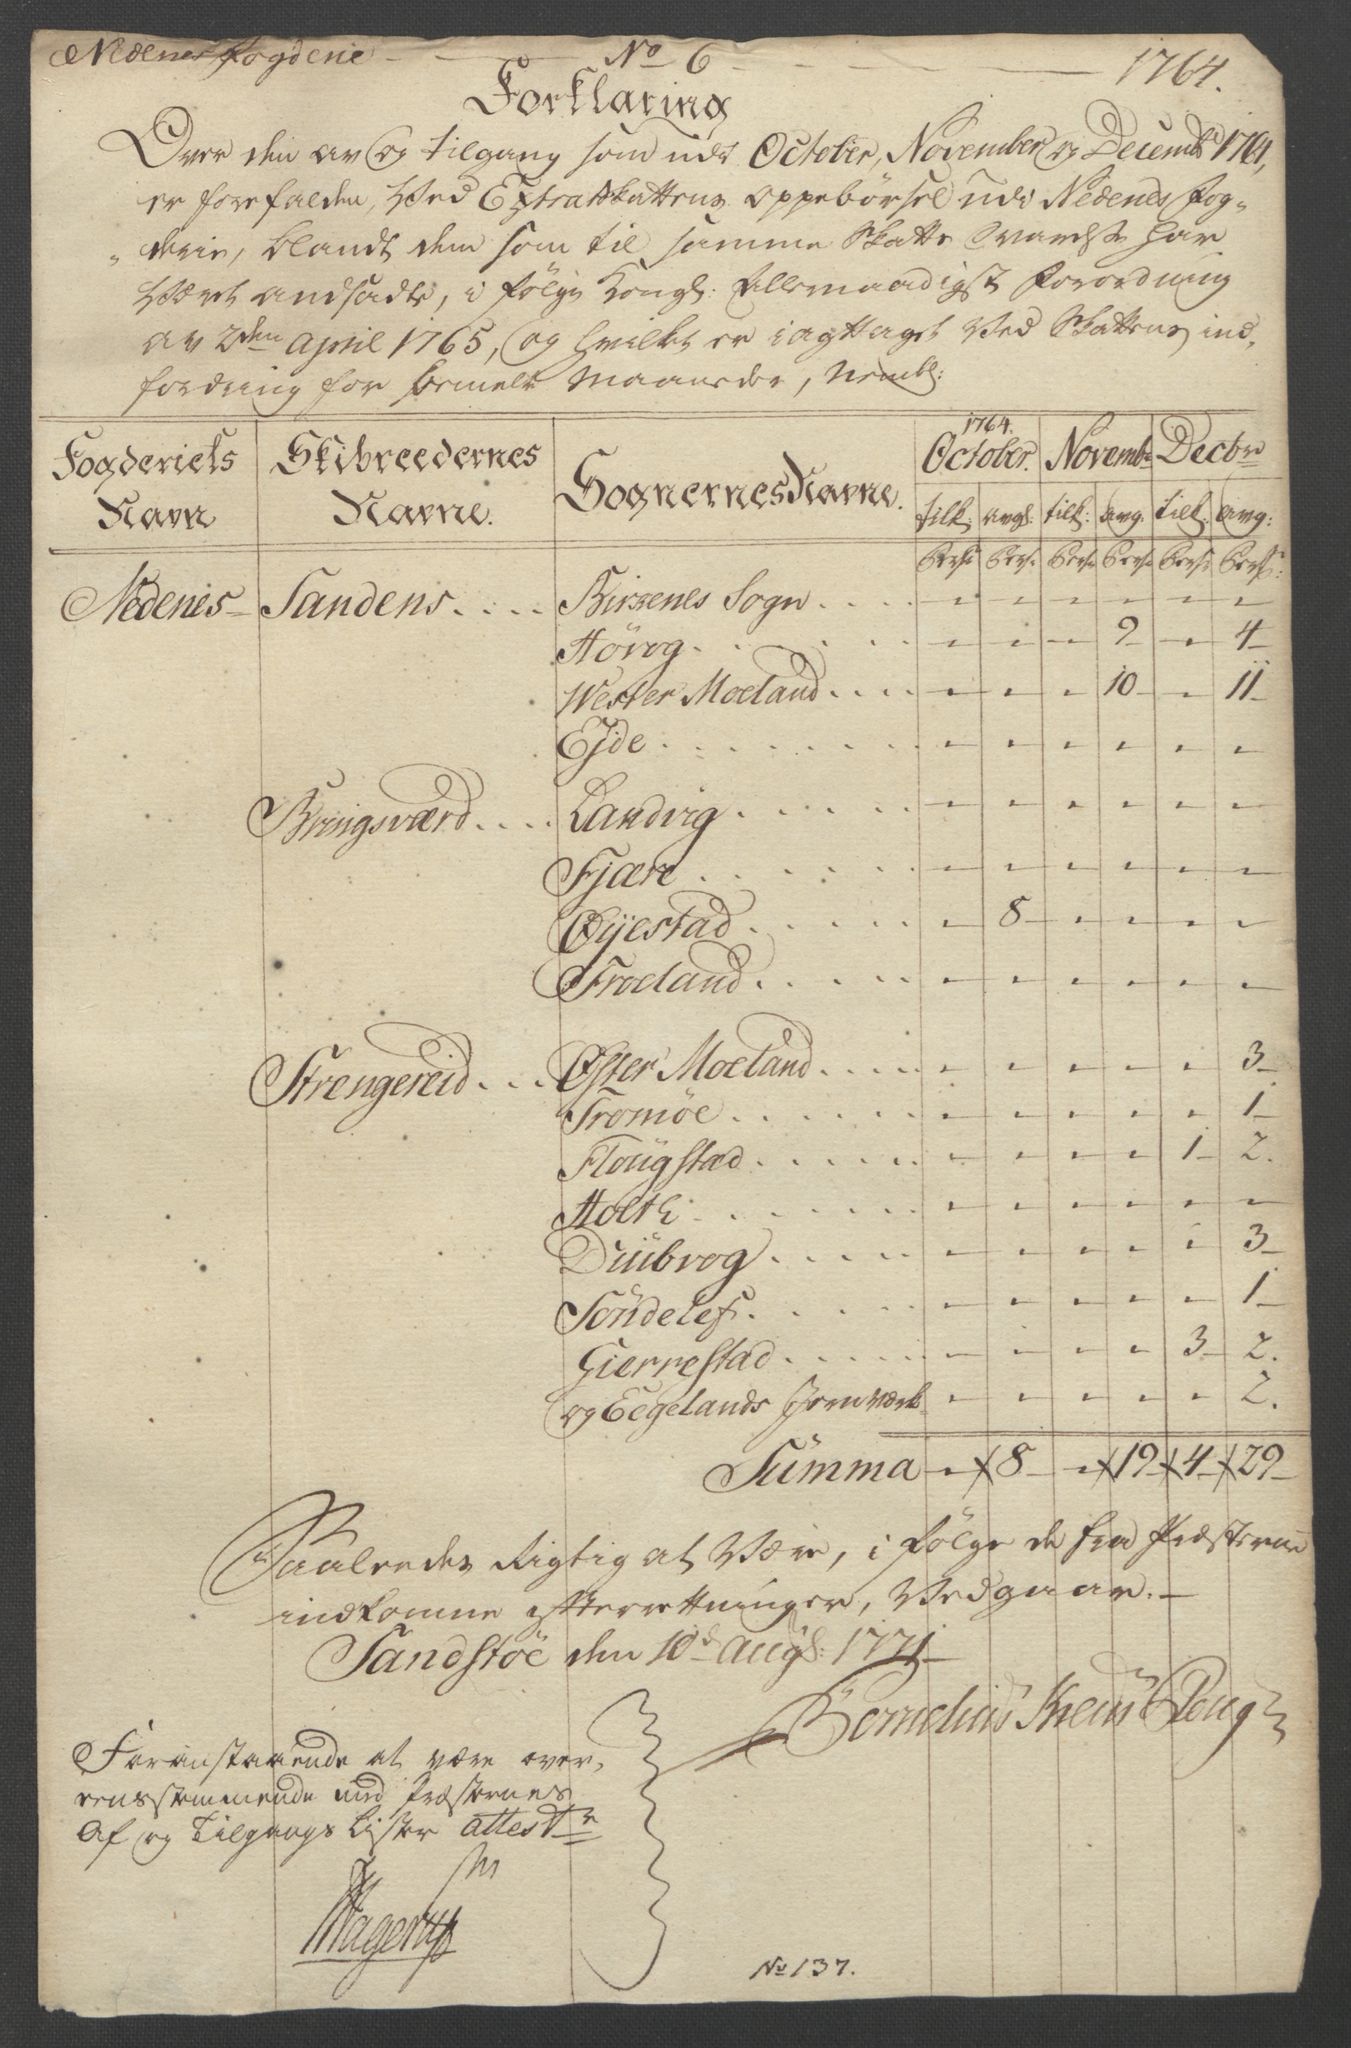 Nedenes Fogderie No 6 1764.
Forklaring
Over den av og tilgang som udi October, November og Decemb: 1764,
er forefalden, ved Extra Skattens oppebörsel udi Nedenes Fog-
derie, blandt dem som til samme Skatts Svarelse har
været andsadte, i følge Kongl: Allernaadigst Forordning
av 2den April 1765, og hvilket er iagttaget ved Skattens ind,
fordring for bemelte Maaneder, Nembl:
1764.
Fogderiets Navn Skibreedernes Navne. Sognernes Navne. October. Novembr Decbr
tilk: avg: tilk: avg. tilk: avg:
Pers: Pers: Pers: Pers: Pers: Pers:
Nedenes Sandens.... Birzenes Sogn.... - - - - - -
Høvog. - - - 9 - 4
Wester Moeland.... - - - 10 - 11
Ejde - - - - - -
Bringsværd.... Landvig - - - - - -
Fjære - - - - - -
Øÿestad - 8 - - - -
Froeland. - - - - - -
Strengereid... Øster Moeland. - - - - - 3
Tromöe - - - - - 1
Flougstad - - - - 1 2.
Holth - - - - - -
Düübvog - - - - - 3
Söndelef - - - - - 1
Gierrestad - - - - 3 2.
og Eegelands Jernværk - - - - - 2.
Summa - 8 - 19 4 29
Saaledes Rigtig at være, i følge de fra Præsterne
indkomne efterretninger, Vedgaar.
Sandstöe den 10d Aug: 1771
Foranstaaende at være over,
eensstemmende med Præsternes
Af og Tilgangs Lister attestr
Hagerup
No 137.